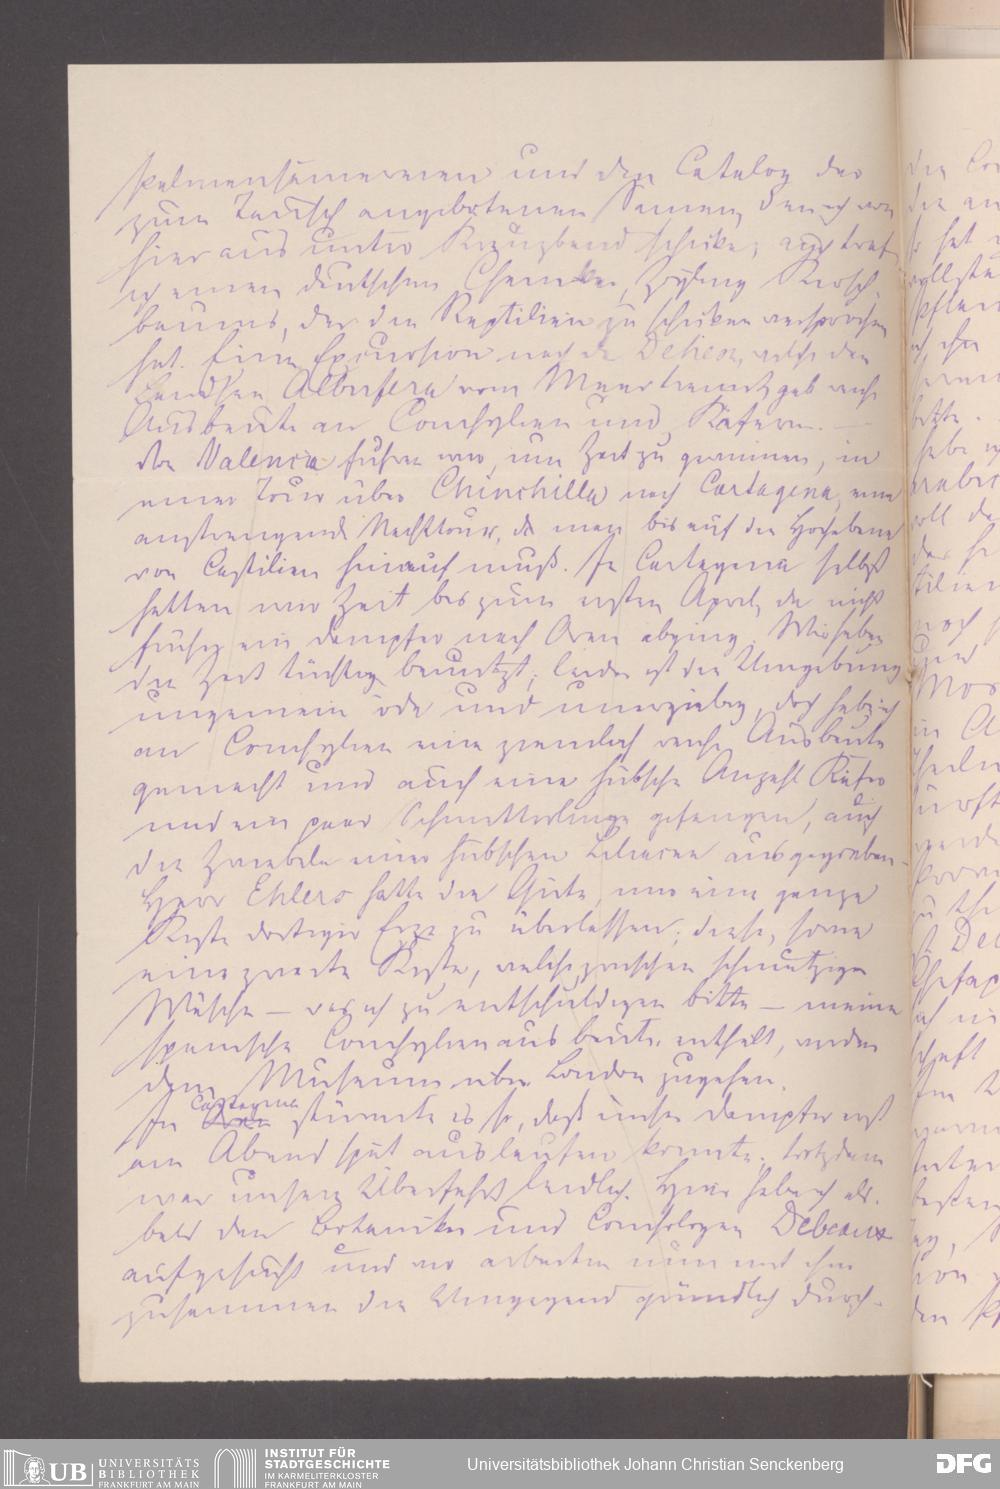 Palmensämereien und den Catalog der
zum Tausch angebotenen Samen, den ich von
hier aus unter Kreuzband schicke; auch traf
ich einen deutschen Chemiker, Kirsch
baum, der den Reptilien zu schicken versprochen
hat. Eine Excursion nach der Dehesa, welche den
Albufera vom Meer trennt, gab reiche
Ausbeute an Conchylien und Käfern. —
Von Valencia fuhren wir, um Zeit zu gewinnen, in
einer Tour über Chinchilla nach Cartagena, eine
anstrengende Nachttour, da man bis auf die Hochebene
von Castilien hinauf muß. In Cartagena selbst
hatten wir Zeit bis zum ersten April, da nicht
früher ein Dampfer nach Oran abging. Wir haben
die Zeit tüchtig benutzt; leider ist die Umgebung
ungemein öde und unergiebig, doch habe ich
an Conchylien eine ziemlich reiche Ausbeute
gemacht und auch eine hübsche Anzahl Käfer
und ein paar Schmetterlinge gefangen, auch
die Zwiebeln einer hübschen Liliacee ausgegraben.
Herr Ehlers hatte die Güte, uns eine ganze
Kiste dortiger Erze zu überlassen; diese, sowie
eine zweite Kiste, welche zwischen schmutziger
Wäsche – was ich zu entschuldigen bitte – meine
spanische Conchylienausbeute enthält, werden
dem Museum über London zugehen.
In Cartagena stürmte es so, daß unser Dampfer erst
am Abend spät auslaufen konnte, trotzdem
war unsere Überfahrt leidlich. Hier habe ich als-
bald den Botaniker und Conchologen Debeaux
aufgesucht und wir arbeiten nun mit ihm
zusammen die Umgegend gründlich durch.
UB UNIVERSITÄTS
BIBLIOTHEK
FRANKFURT AM MAIN
INSTITUT FÜR
STADTGESCHICHTE
IM KARMELITERKLOSTER
FRANKFURT AM MAIN
Universitätsbibliothek Johann Christian Senckenberg
DFG